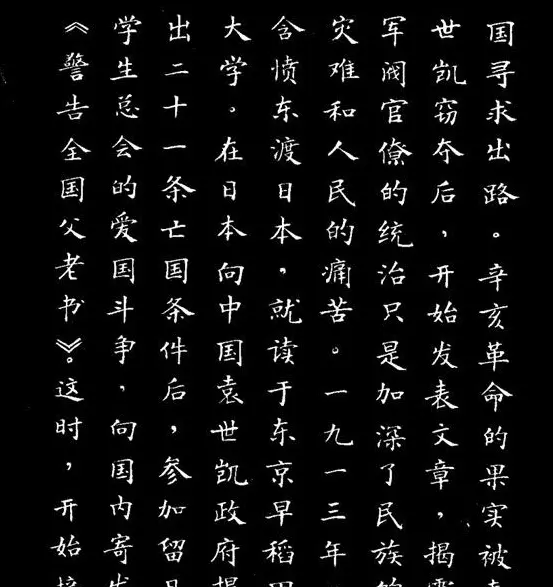 国寻求出路。辛亥革命的果实被
世凯窃夺后，开始发表文章，揭
军阀官僚的统治只是加深了民族
灾难和人民的痛苦。一九一三年
含愤东渡日本，就读于东京早稻
大学。在日本向中国袁世凯政府
出二十一条亡国条件后，参加留
学生总会的爱国斗争，向国内寄
《警告全国父老书》。这时，开始